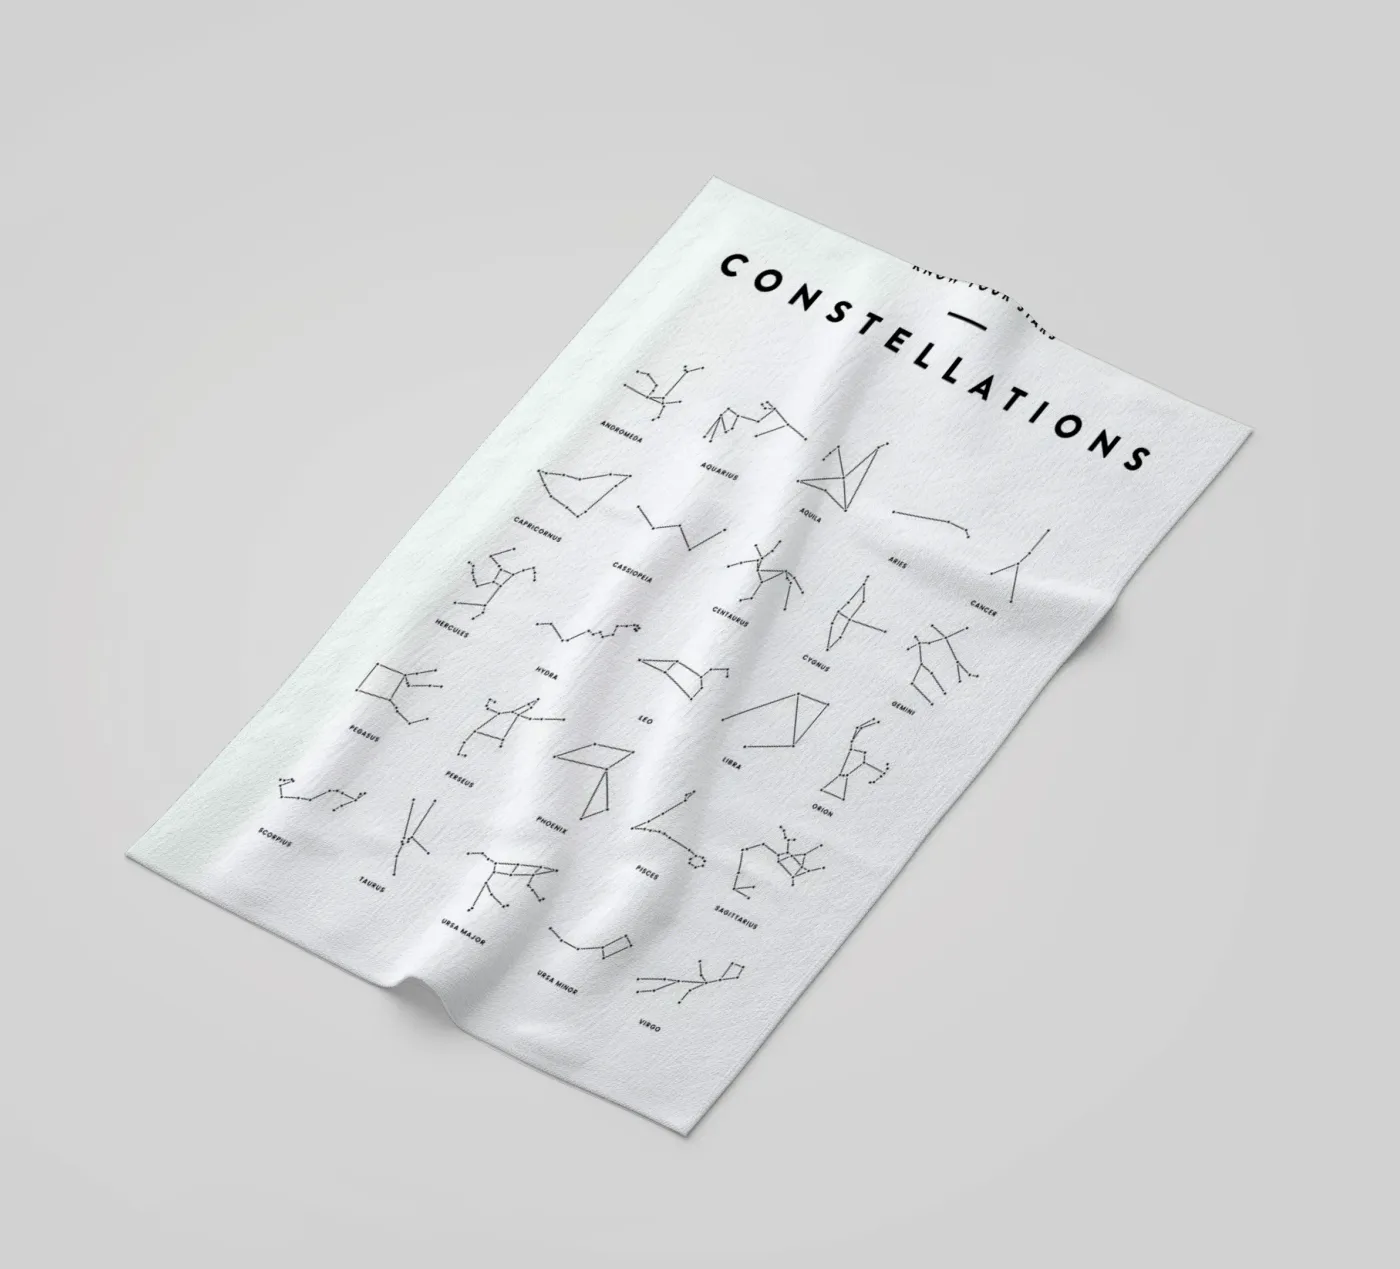 KNOW YOUR STARS
CONSTELLATIONS
ANDROMEDA
AQUARIUS
AQUILA
ARIES
CANCER
CAPRICORNUS
CASSIOPEIA
CENTAURUS
CYGNUS
GEMINI
HERCULES
HYDRA
LEO
LIBRA
ORION
PEGASUS
PERSEUS
PHOENIX
PISCES
SAGITTARIUS
SCORPIUS
TAURUS
URSA MAJOR
URSA MINOR
VIRGO